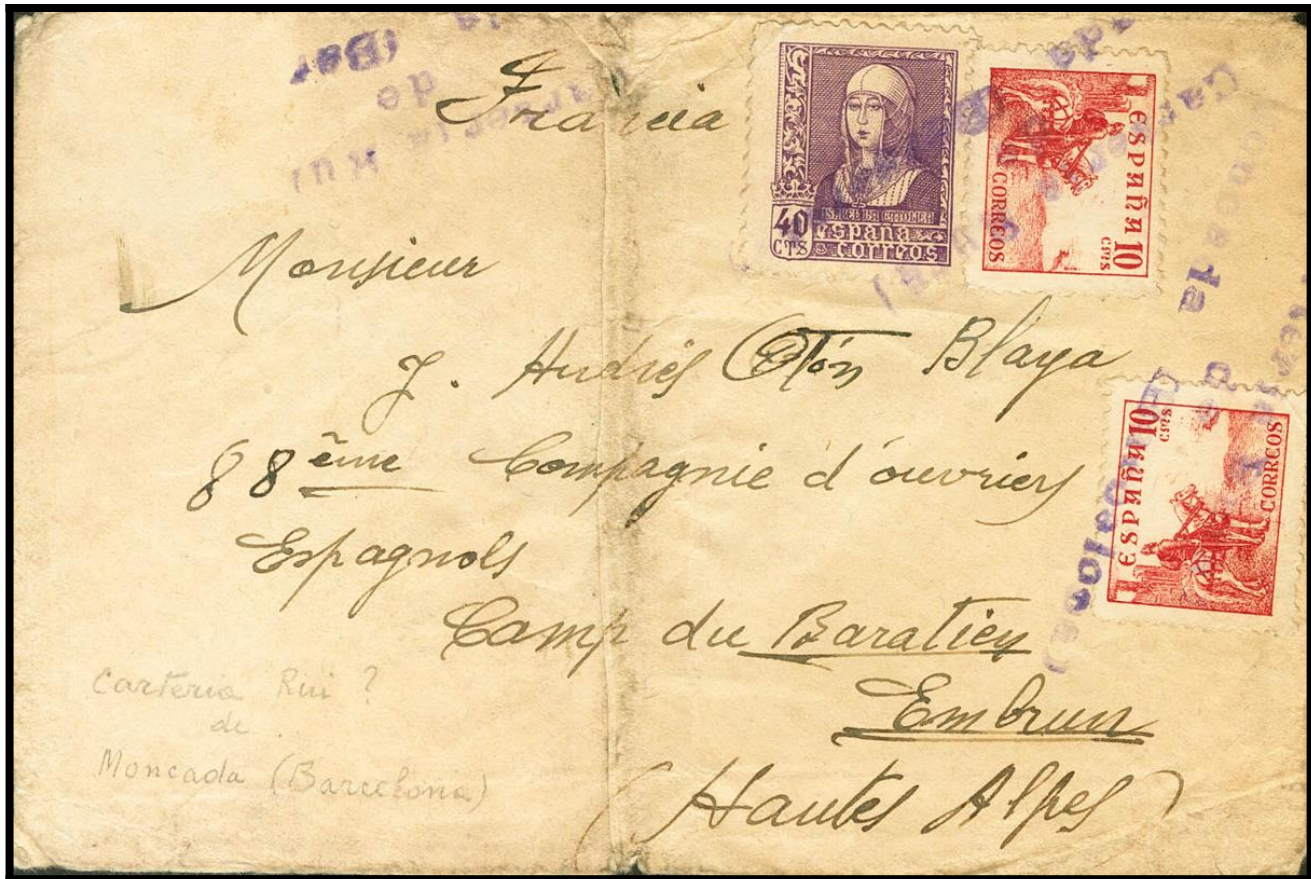 Francia
40
CTS
ISABEL LA CATOLICA
españa
correos
ESPAÑA 10
CTS
CORREOS
Monsieur
J. Andrés Otón Blaya
88ème Compagnie d'ouvriers
Espagnols
Camp du Baratier
Embrun
(Hautes Alpes)
ESPAÑA 10
CTS
CORREOS
Carteria Rui ?
de
Moncada (Barcelona)